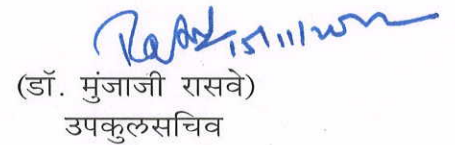 15/11/2022
(डॉ. मुंजाजी रासवे)
उपकुलसचिव